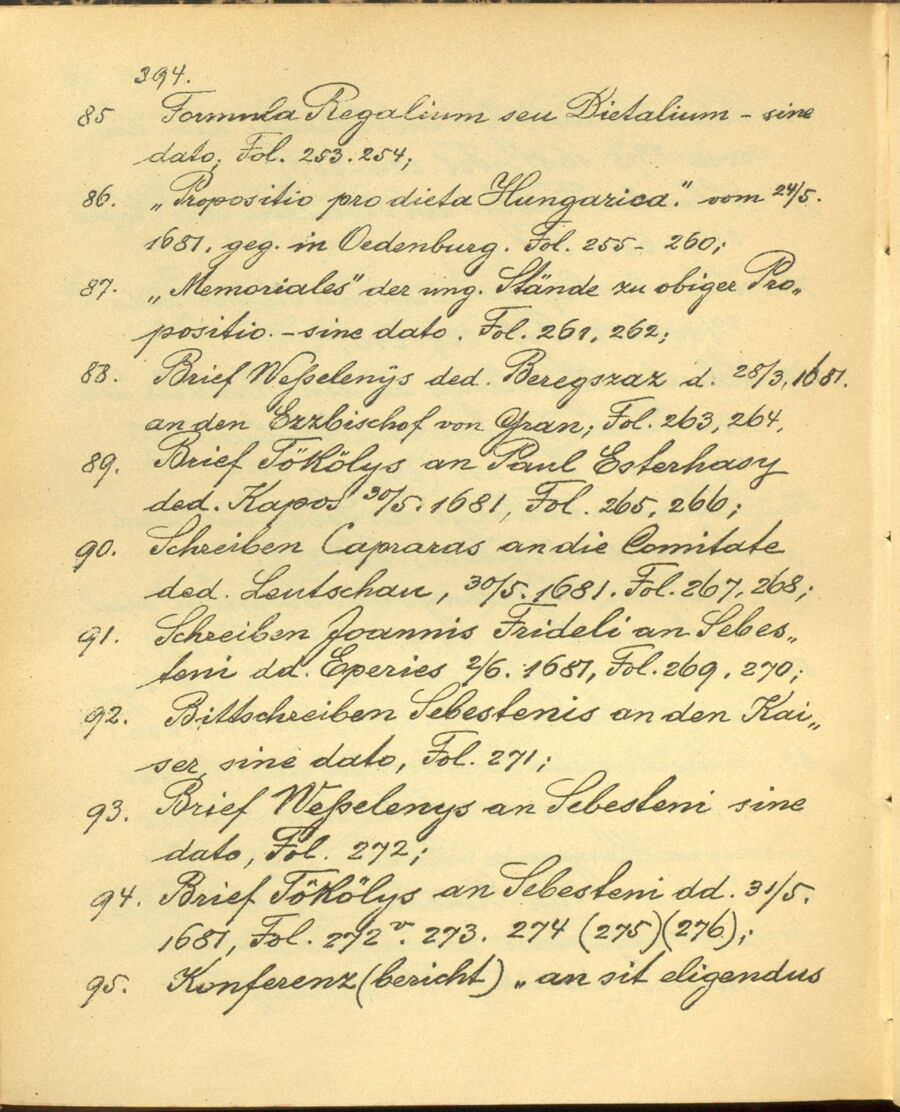 394.
85 Formula Regalium seu Dietalium - sine
dato; Fol. 253. 254;
86. „Propositio pro dieta Hungarica". vom 24/5.
1681, geg. in Oedenburg. Fol. 255 - 260;
87. „Memoriales" der ung. Stände zu obiger Pro„
positio. - sine dato. Fol. 261, 262;
88. Brief Weßelenÿs ded. Beregszaz d. 28/3, 1681.
an den Erzbischof von Gran; Fol. 263, 264,
89. Brief Tökölys an Paul Esterhasy
ded. Kapos 30/5. 1681, Fol. 265, 266;
90. Schreiben Capraras an die Comitate
ded. Leutschau, 30/5. 1681. Fol. 267, 268;
91. Schreiben Joannis Frideli an Sebes„
teni dd. Eperies 2/6. 1681, Fol. 269, 270;
92. Bittschreiben Sebestenis an den Kai„
ser, sine dato, Fol. 271;
93. Brief Weßelenys an Sebesteni sine
dato, Fol. 272;
94. Brief Tökölys an Sebesteni dd. 31/5.
1681, Fol. 272v. 273. 274 (275) (276);
95. Konferenz(bericht) „an sit eligendus